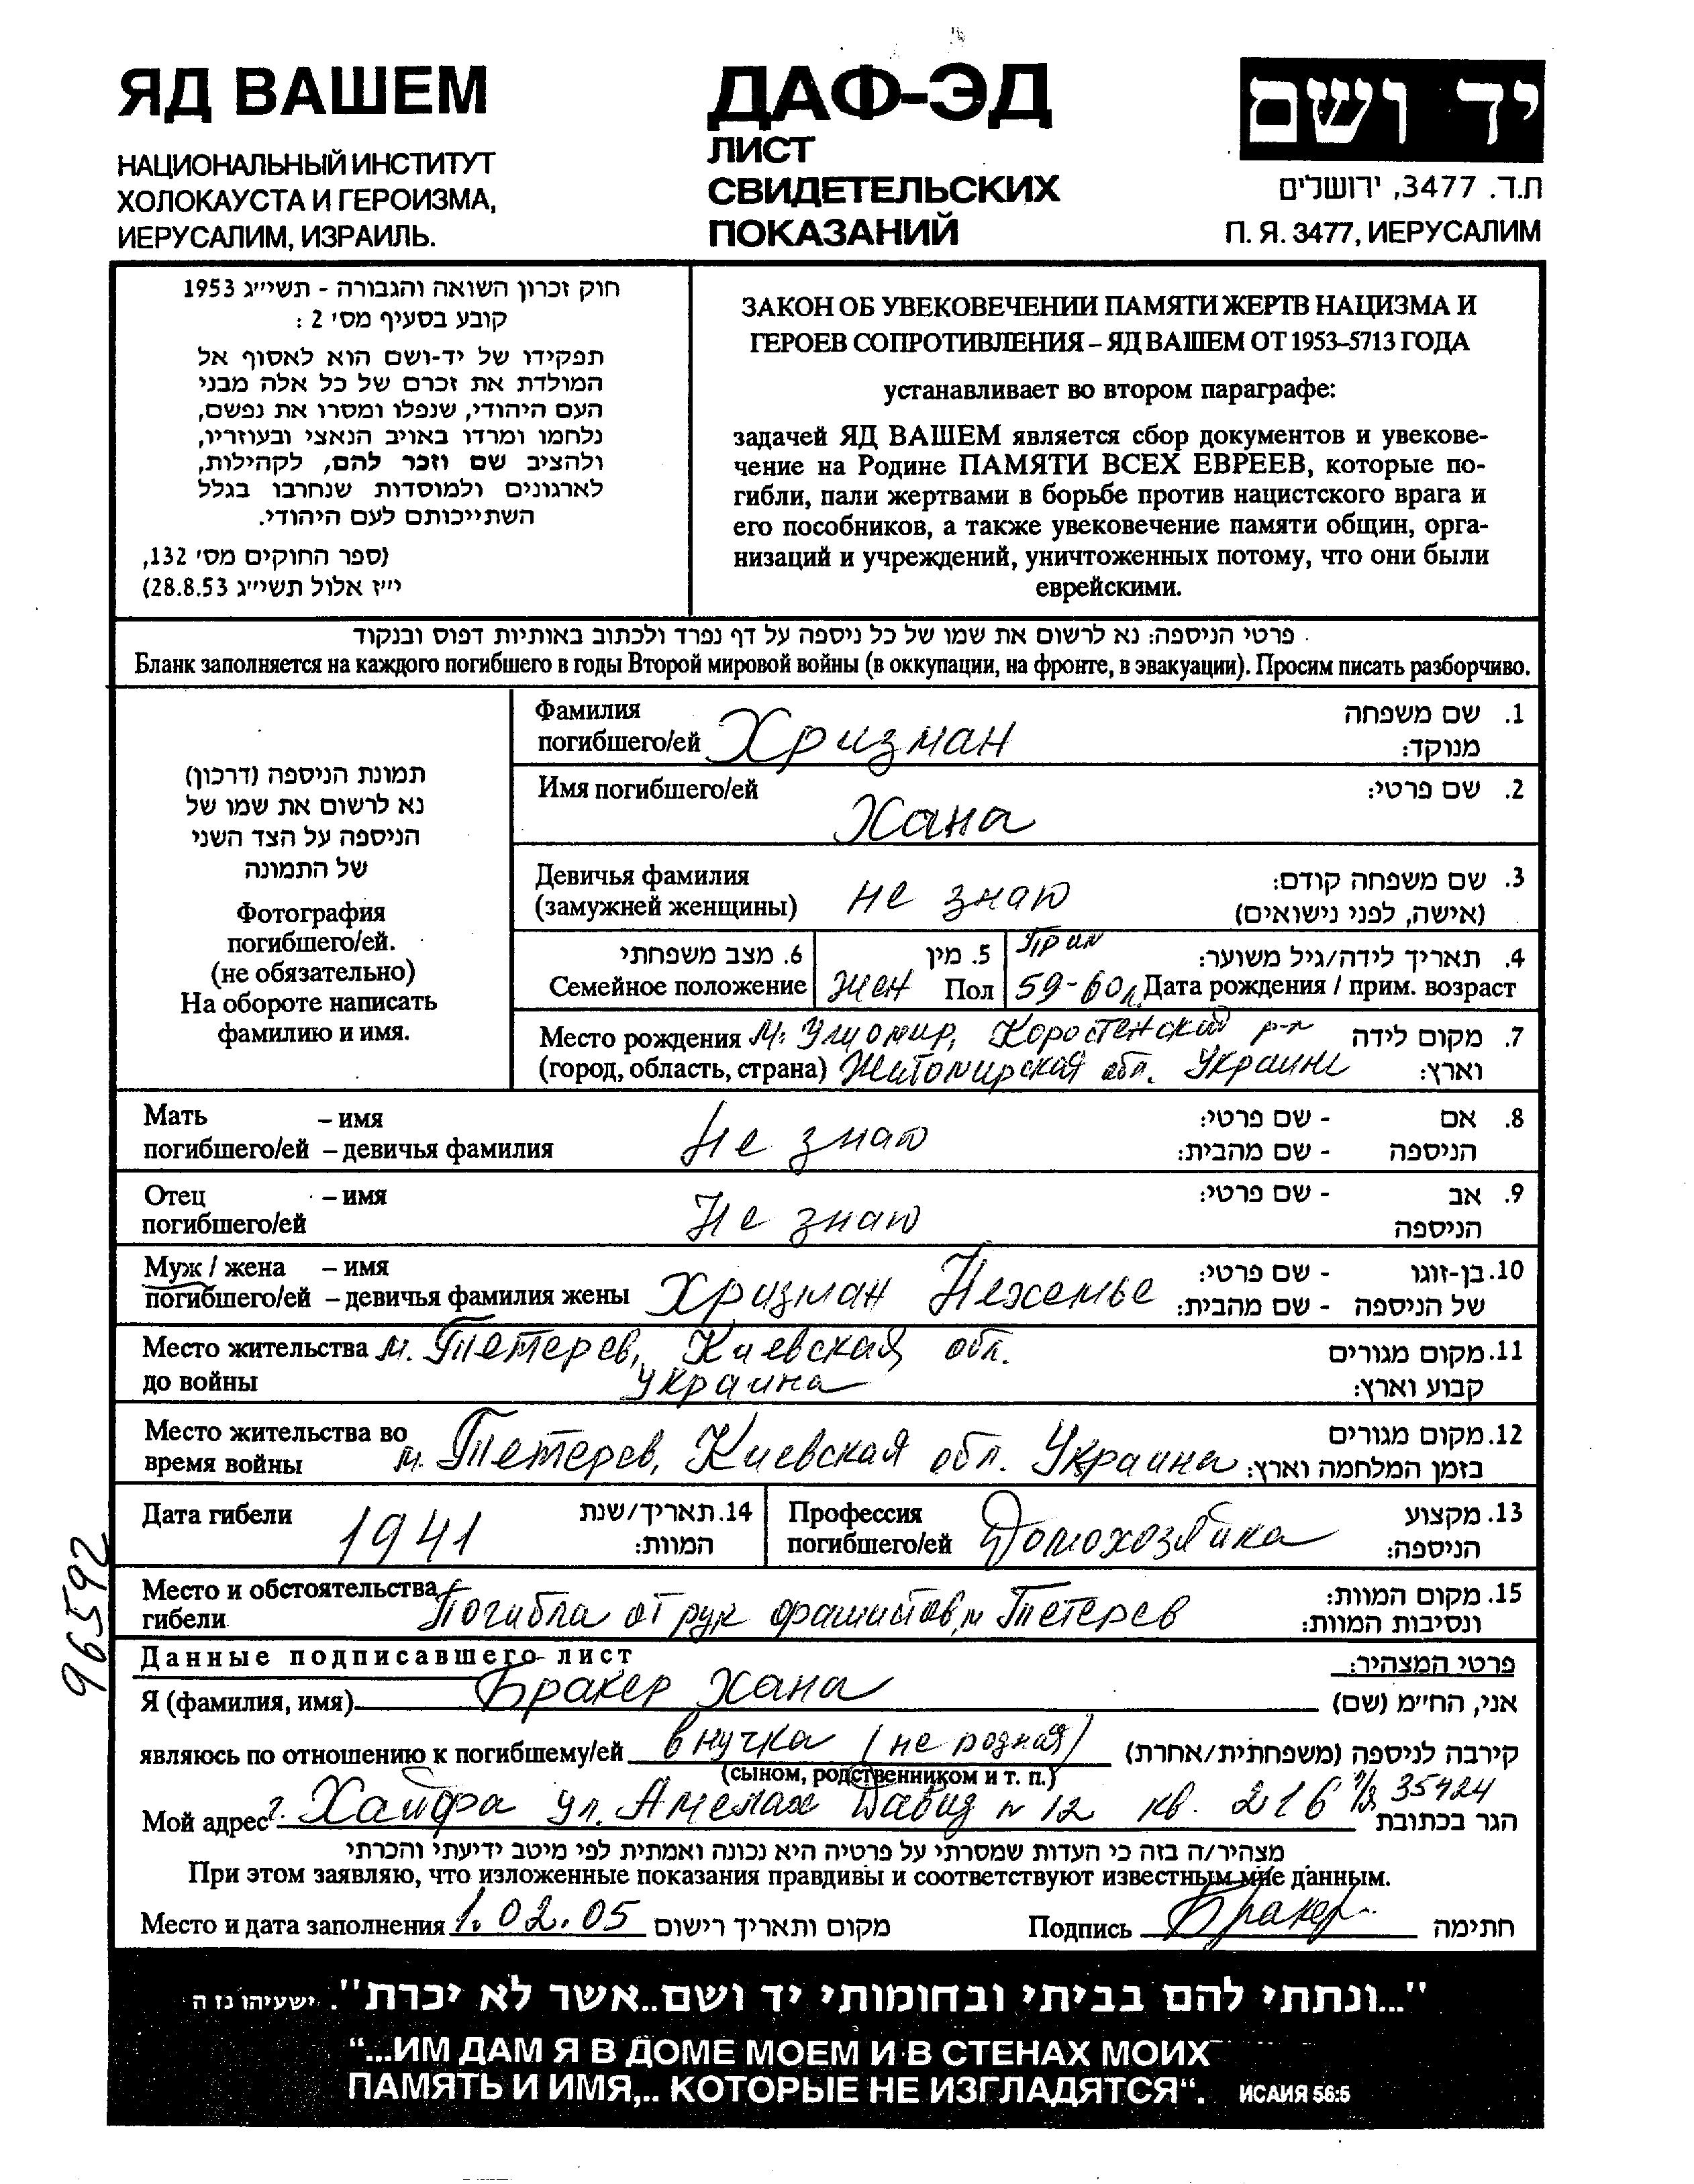 ЯД ВАШЕМ
НАЦИОНАЛЬНЫЙ ИНСТИТУТ
ХОЛОКАУСТА И ГЕРОИЗМА,
ИЕРУСАЛИМ, ИЗРАИЛЬ.
ДАФ-ЭД
ЛИСТ
СВИДЕТЕЛЬСКИХ
ПОКАЗАНИЙ
יד ושם
ת.ד. 3477, ירושלים
П. Я. 3477, ИЕРУСАЛИМ
חוק זכרון השואה והגבורה - תשי״ג 1953
קובע בסעיף מס׳ 2 :
תפקידו של יד-ושם הוא לאסוף אל
המולדת את זכרם של כל אלה מבני
העם היהודי, שנפלו ומסרו את נפשם,
נלחמו ומרדו באויב הנאצי ובעוזריו,
ולהציב שם וזכר להם, לקהילות,
לארגונים ולמוסדות שנחרבו בגלל
השתייכותם לעם היהודי.
(ספר החוקים מס׳ 132,
י״ז אלול תשי״ג 28.8.53)
ЗАКОН ОБ УВЕКОВЕЧЕНИИ ПАМЯТИ ЖЕРТВ НАЦИЗМА И
ГЕРОЕВ СОПРОТИВЛЕНИЯ – ЯД ВАШЕМ ОТ 1953–5713 ГОДА
устанавливает во втором параграфе:
задачей ЯД ВАШЕМ является сбор документов и увекове-
чение на Родине ПАМЯТИ ВСЕХ ЕВРЕЕВ, которые по-
гибли, пали жертвами в борьбе против нацистского врага и
его пособников, а также увековечение памяти общин, орга-
низаций и учреждений, уничтоженных потому, что они были
еврейскими.
פרטי הניספה: נא לרשום את שמו של כל ניספה על דף נפרד ולכתוב באותיות דפוס ובנקוד
Бланк заполняется на каждого погибшего в годы Второй мировой войны (в оккупации, на фронте, в эвакуации). Просим писать разборчиво.
תמונת הניספה (דרכון)
נא לרשום את שמו של
הניספה על הצד השני
של התמונה
Фотография
погибшего/ей.
(не обязательно)
На обороте написать
фамилию и имя.
Фамилия 1. שם משפחה
погибшего/ей Хризман מנוקד:
Имя погибшего/ей 2. שם פרטי:
Хана
Девичья фамилия 3. שם משפחה קודם:
(замужней женщины) не знаю (אישה, לפני נישואים)
6. מצב משפחתי 5. מין Прим 4. תאריך לידה/גיל משוער:
Семейное положение жен Пол 59-60л Дата рождения / прим. возраст
Место рождения м. Ушомир, Коростенский р-н 7. מקום לידה
(город, область, страна) Житомирская обл. Украине וארץ:
Мать – имя - שם פרטי: 8. אם
погибшего/ей – девичья фамилия Не знаю - שם מהבית: הניספה
Отец – имя - שם פרטי: 9. אב
погибшего/ей Не знаю הניספה
Муж / жена – имя - שם פרטי: 10. בן-זוגו
погибшего/ей – девичья фамилия жены Хризман Нехемье - שם מהבית: של הניספה
Место жительства м. Тетерев, Киевская обл. 11. מקום מגורים
до войны Украина קבוע וארץ:
Место жительства во 12. מקום מגורים
время войны м. Тетерев, Киевская обл. Украина בזמן המלחמה וארץ:
Дата гибели 1941 14. תאריך/שנת Профессия 13. מקצוע
המוות: погибшего/ей Домохозяйка הניספה:
Место и обстоятельства 15. מקום המוות:
гибели Погибла от рук фашистов, м Тетерев ונסיבות המוות:
96592
Данные подписавшего лист פרטי המצהיר:
Я (фамилия, имя) Бракер Хана אני, הח״מ (שם)
являюсь по отношению к погибшему/ей внучка (не родная) קירבה לניספה (משפחתית/אחרת)
(сыном, родственником и т. п.)
Мой адрес г. Хайфа ул. Амелах Давид н 12 кв. 216 35424 הגר בכתובת
מצהיר/ה בזה כי העדות שמסרתי על פרטיה היא נכונה ואמתית לפי מיטב ידיעתי והכרתי
При этом заявляю, что изложенные показания правдивы и соответствуют известным мне данным.
Место и дата заполнения 1.02.05 מקום ותאריך רישום Подпись Бракер חתימה
"...ונתתי להם בביתי ובחומותי יד ושם..אשר לא יכרת". ישעיהו נז ה
“...ИМ ДАМ Я В ДОМЕ МОЕМ И В СТЕНАХ МОИХ
ПАМЯТЬ И ИМЯ,.. КОТОРЫЕ НЕ ИЗГЛАДЯТСЯ“. ИСАИЯ 56:5